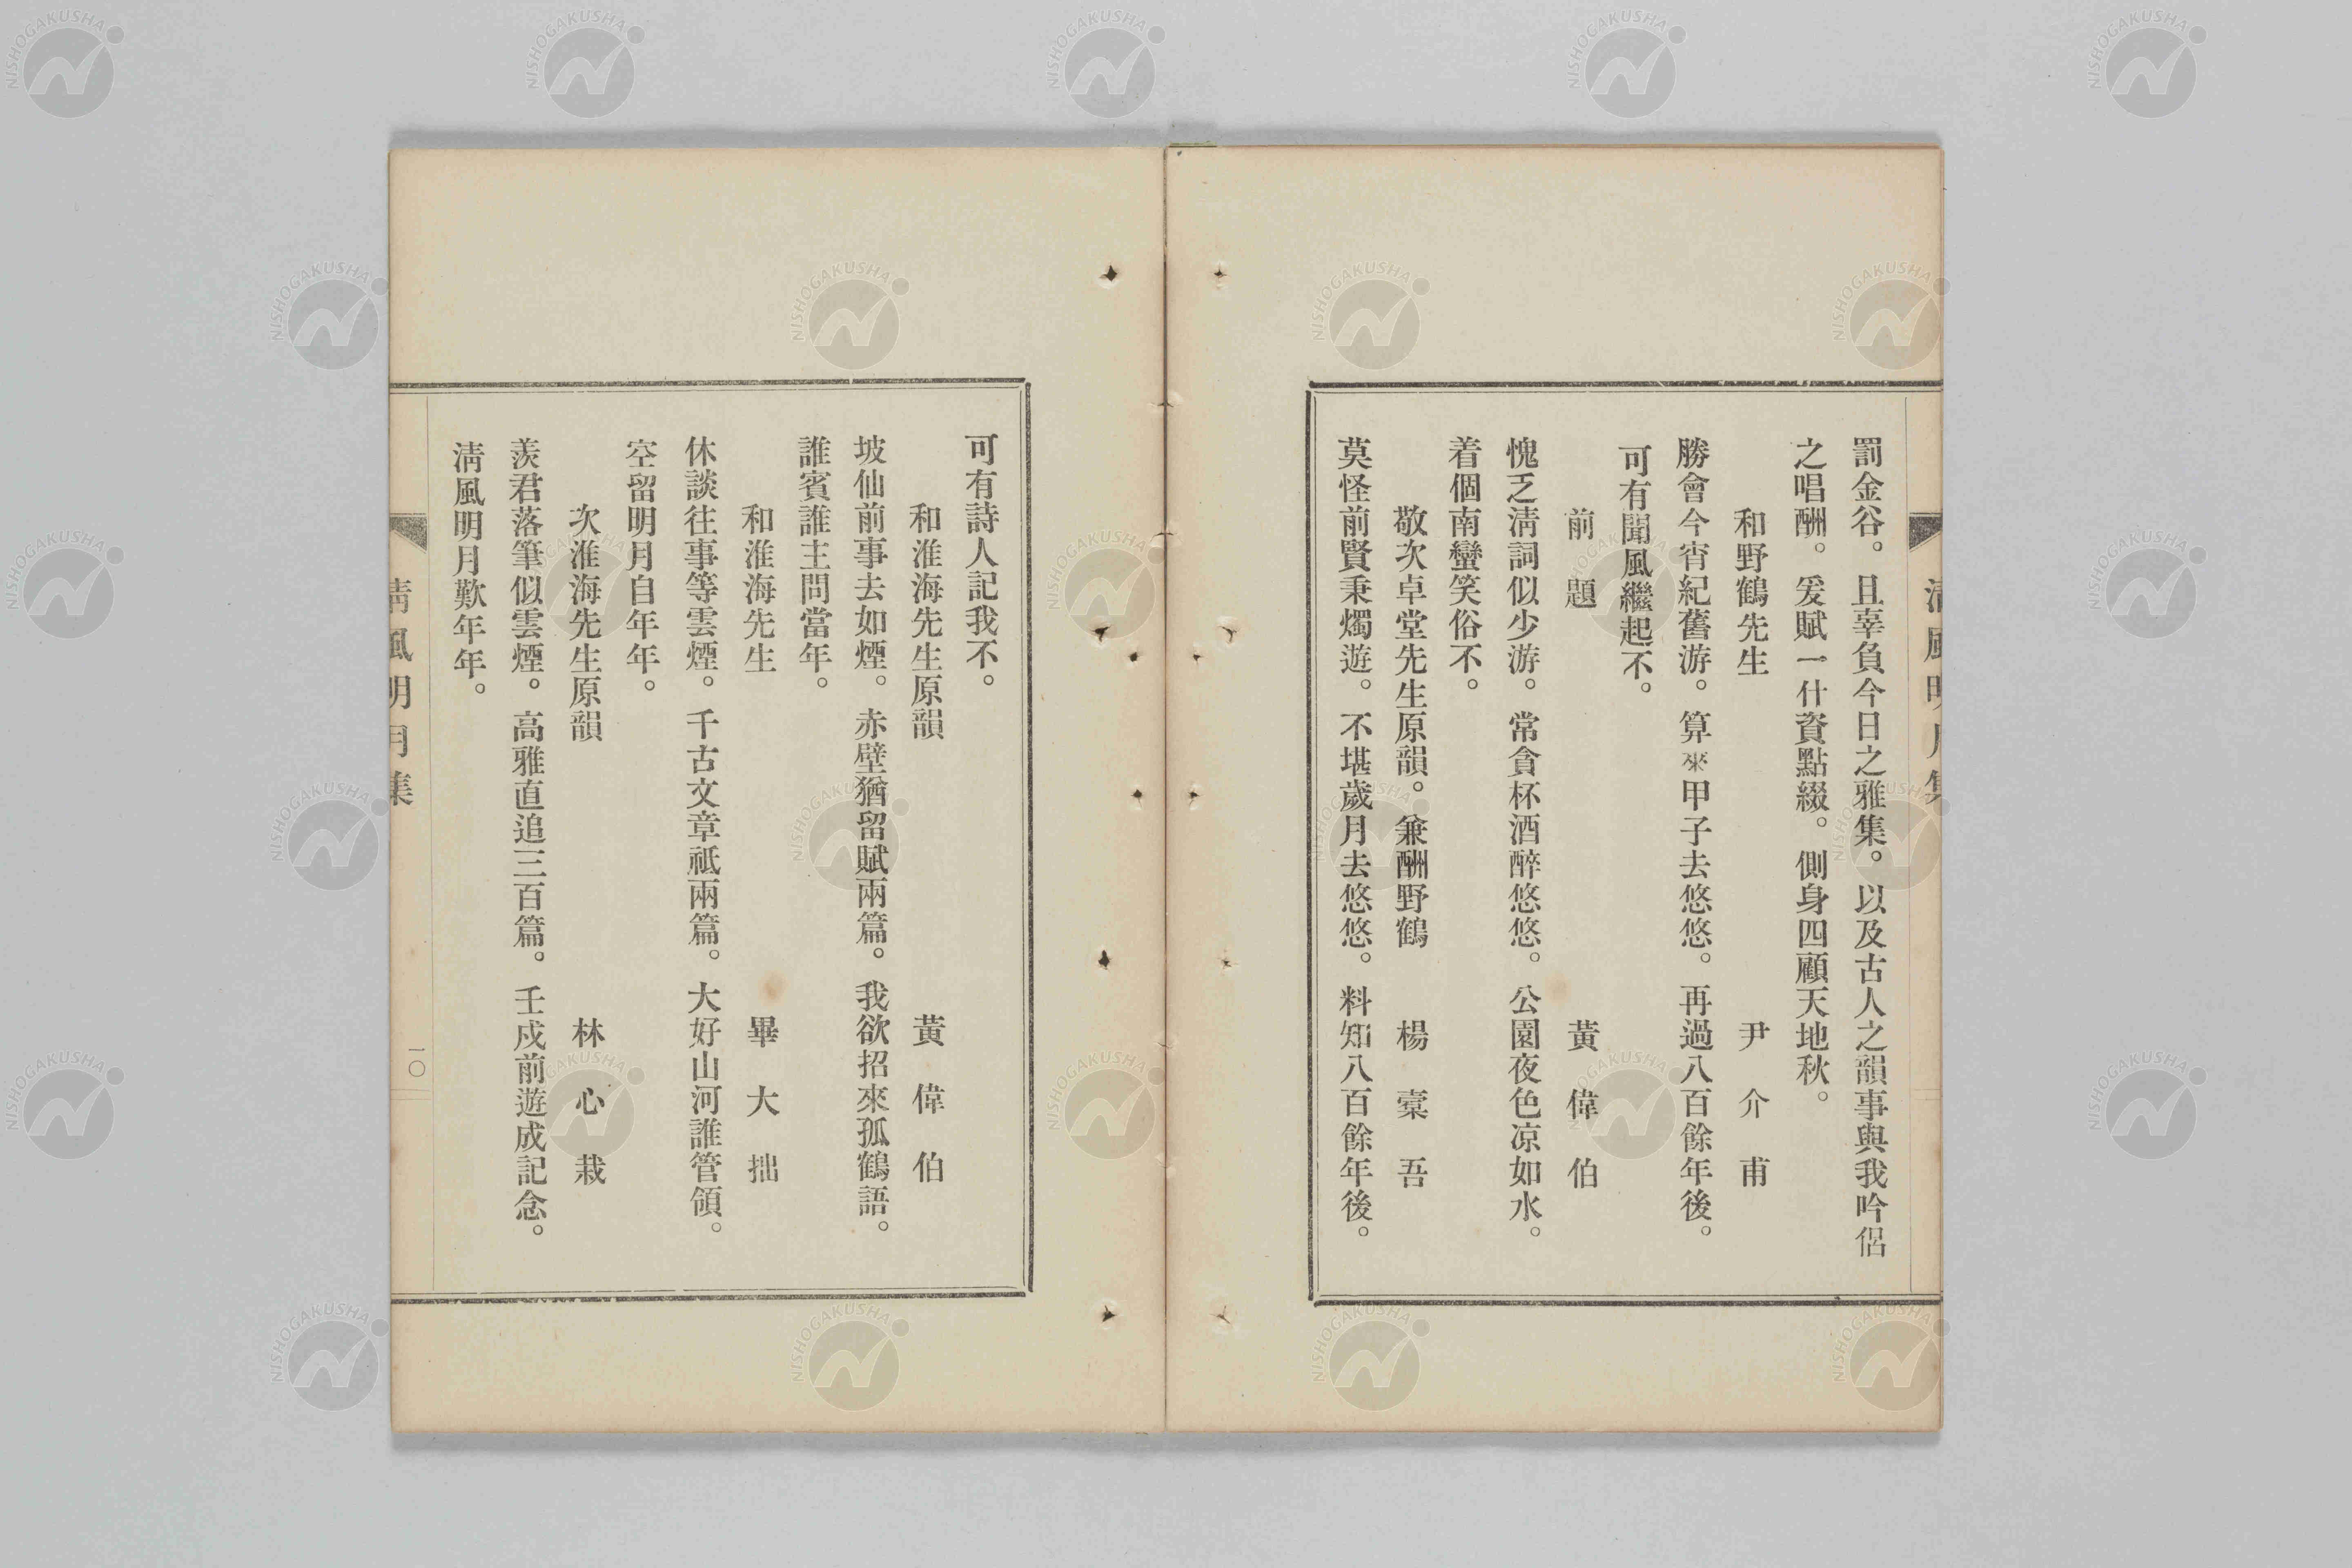 清風明月集
罰金谷。且辜負今日之雅集。以及古人之韻事與我吟侶
之唱酬。爰賦一什資點綴。側身四顧天地秋。
和野鶴先生　尹介甫
勝會今宵紀舊游。算來甲子去悠悠。再過八百餘年後。
可有聞風繼起不。
前題　黃偉伯
愧乏淸詞似少游。常貪杯酒醉悠悠。公園夜色凉如水。
着個南蠻笑俗不。
敬次卓堂先生原韻。兼酬野鶴　楊橐吾
莫怪前賢秉燭遊。不堪歲月去悠悠。料知八百餘年後。
可有詩人記我不。
和淮海先生原韻　黃偉伯
坡仙前事去如煙。赤壁猶留賦兩篇。我欲招來孤鶴語。
誰賓誰主問當年。
和淮海先生　畢大拙
休談往事等雲煙。千古文章祗兩篇。大好山河誰管領。
空留明月自年年。
次淮海先生原韻　林心栽
羨君落筆似雲煙。高雅直追三百篇。壬戌前遊成記念。
淸風明月歎年年。
清風明月集
一〇
NISHOGAKUSHA